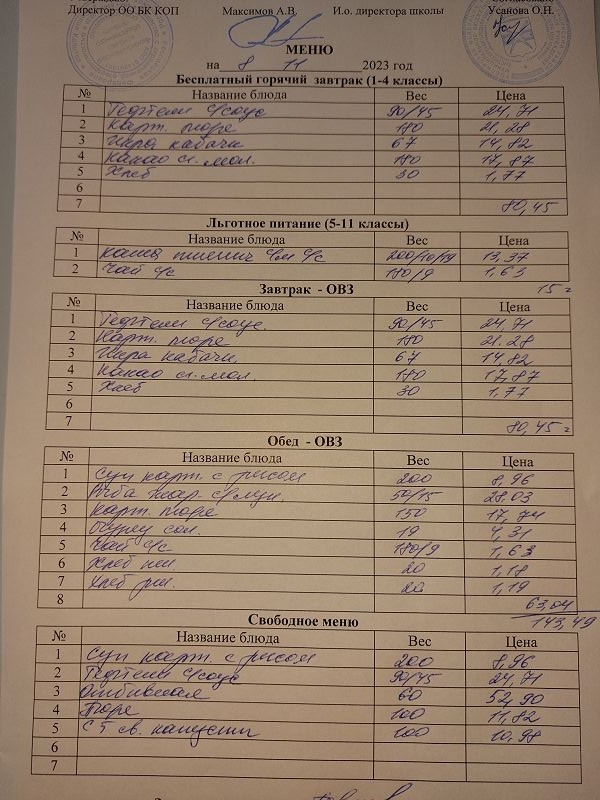 Директор ОО БК КОП Максимов А.В. И.о. директора школы Усанова О.Н.
МЕНЮ
на 8 11 2023 год
Бесплатный горячий завтрак (1-4 классы)
№ Название блюда Вес Цена
1 Тефтели с/соус 90/45 24,71
2 Карт. пюре 180 21,28
3 Икра кабачк 67 14,82
4 Какао сг. мол. 180 17,87
5 Хлеб 30 1,77
6
7 80,45
Льготное питание (5-11 классы)
№ Название блюда Вес Цена
1 каша пшенич 13,37
2 Чай с/с 180/9 1,63
15 г
Завтрак - ОВЗ
№ Название блюда Вес Цена
1 Тефтели с/соус. 90/45 24,71
2 Карт. пюре 180 21.28
3 Икра кабачк. 67 14,82
4 Какао сг. мол. 180 17,87
5 Хлеб 30 1,77
6
7 80,45 г
Обед - ОВЗ
№ Название блюда Вес Цена
1 Суп карт. с рисом 200 8,96
2 Рыба жар. 50/15 28.03
3 Карт. пюре 150 17,74
4 Огурец сол. 19 4,31
5 Чай с/с 180/9 1,63
6 Хлеб пш. 20 1,18
7 Хлеб рж. 20 1,19
8 63,04
143,49
Свободное меню
№ Название блюда Вес Цена
1 Суп карт. с рисом 200 8,96
2 Тефтели с/соус 90/45 24,71
3 Отбивная 60 52,90
4 Пюре 100 11,82
5 С-т св. капусты 100 10,98
6
7